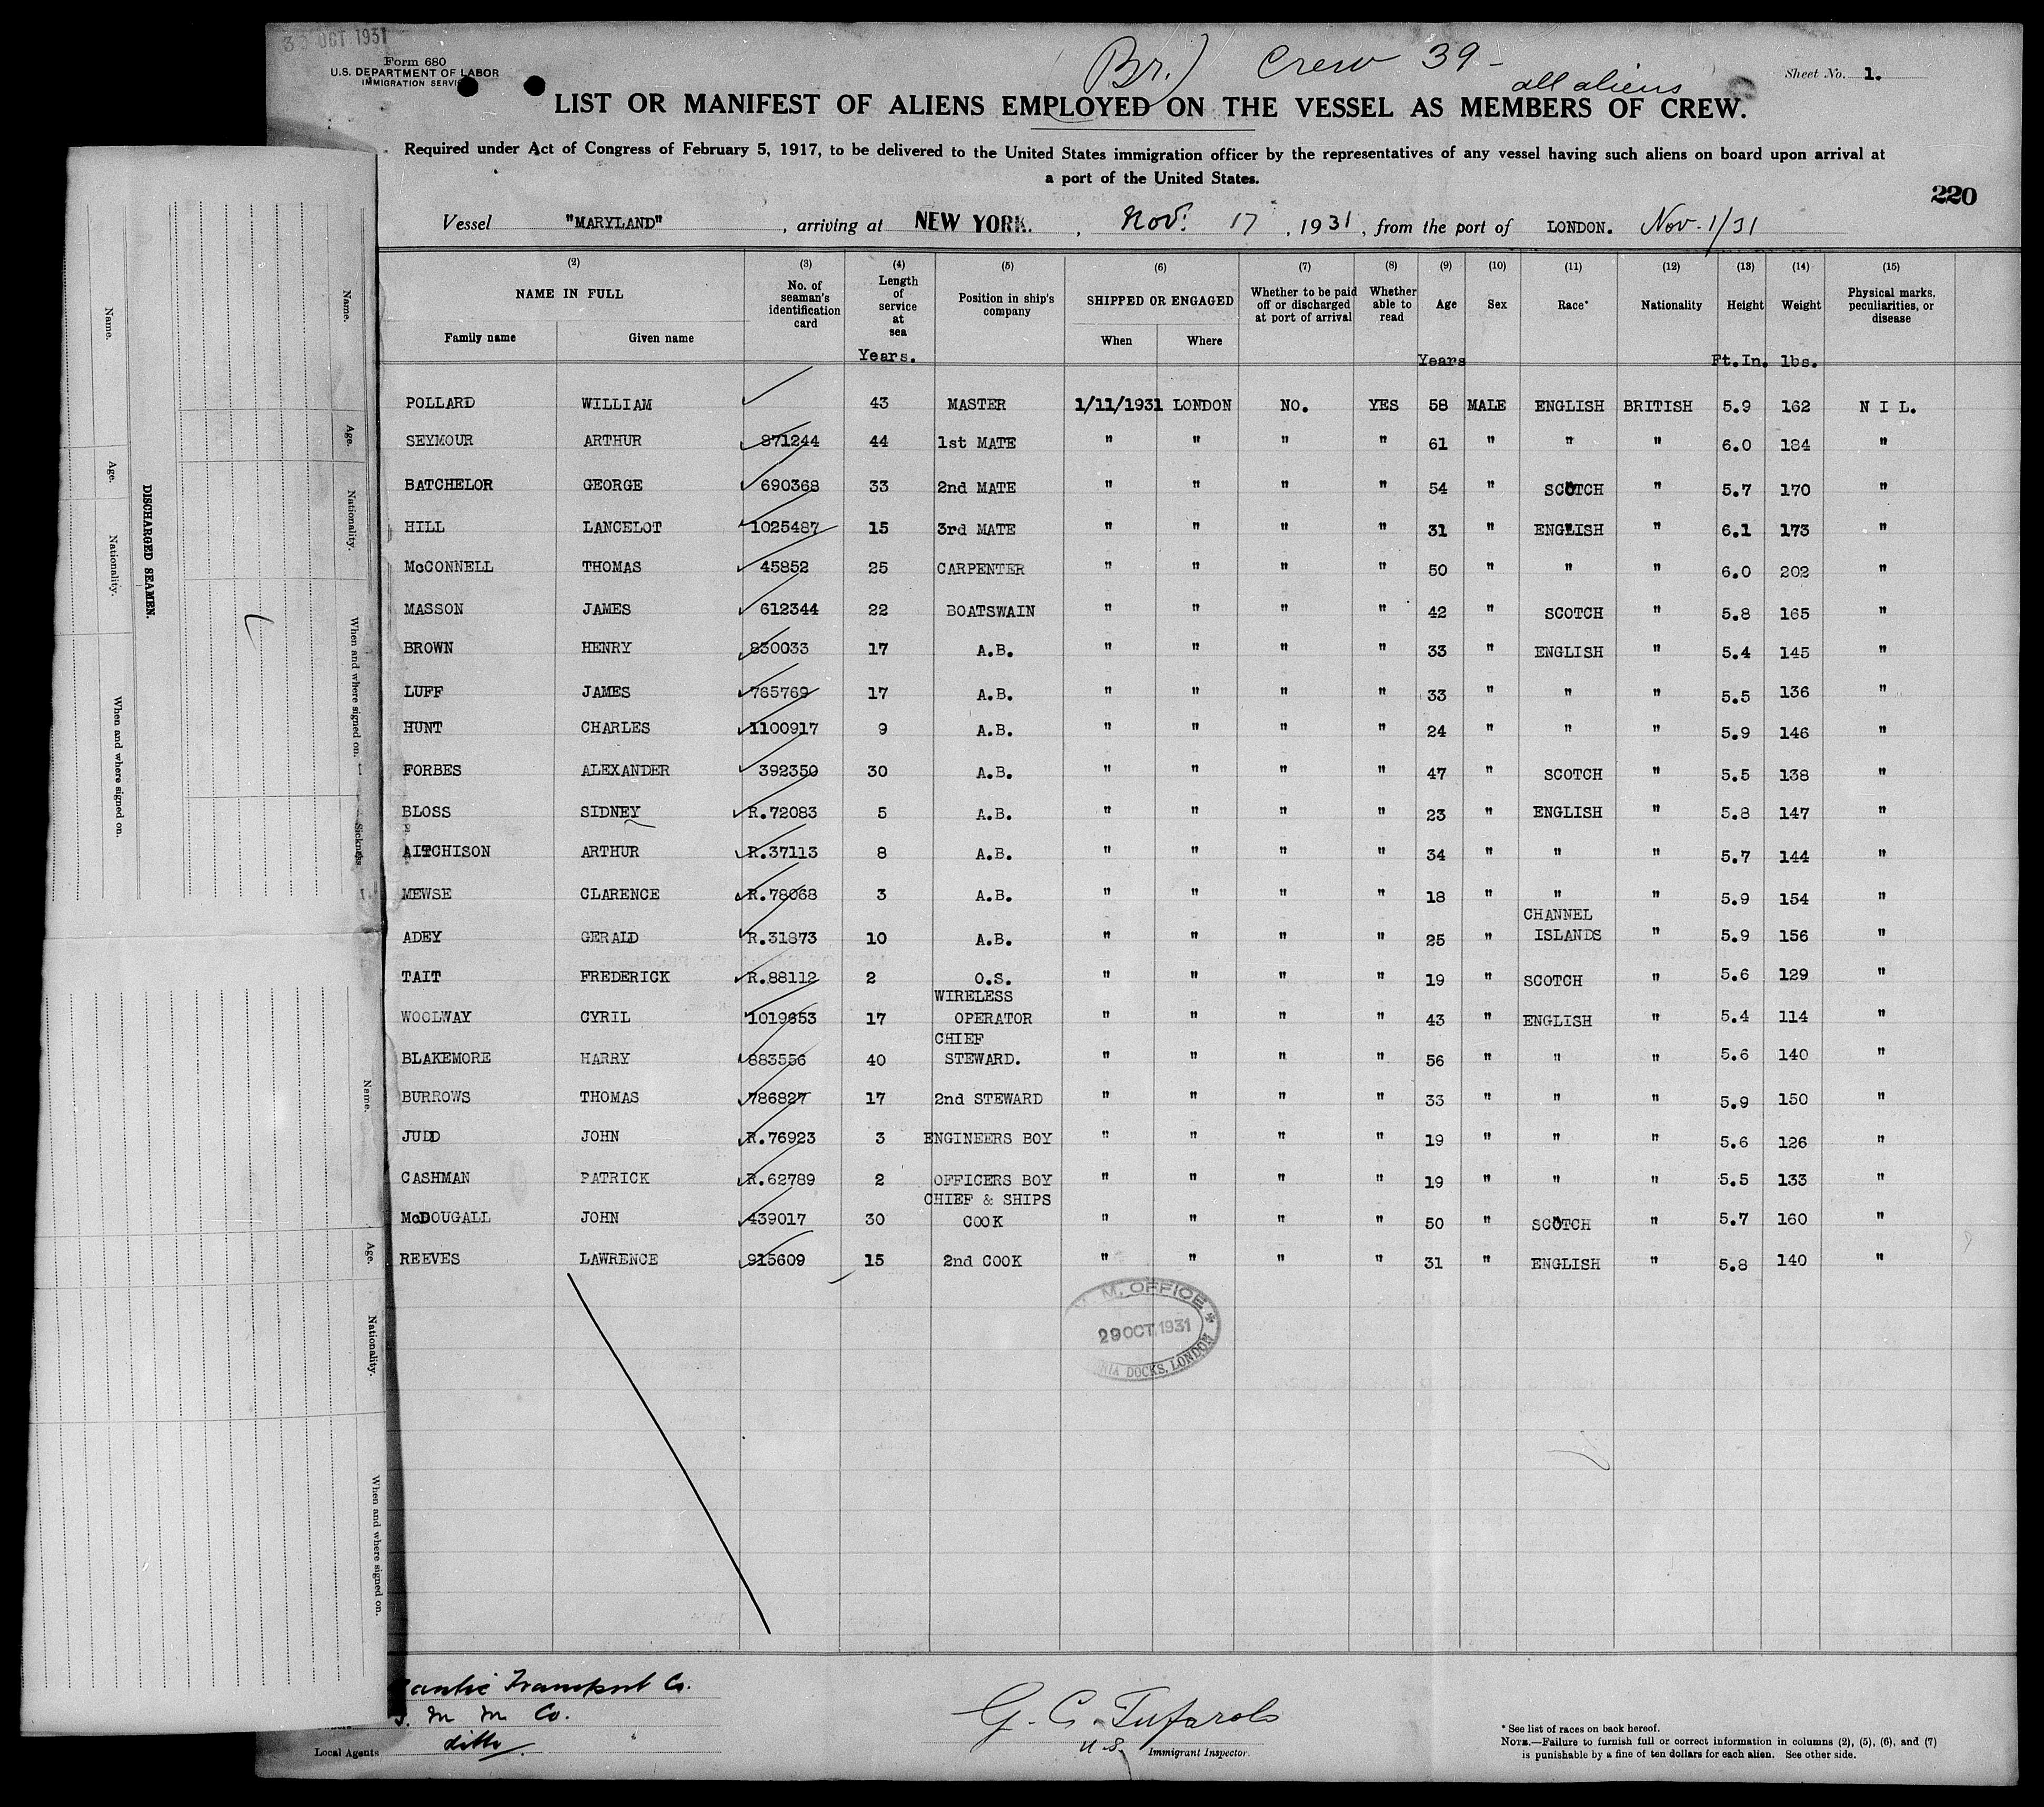 OCT 1931
Form 680
U.S. DEPARTMENT OF LABOR
IMMIGRATION SERVICE
Br.) Crew 39 - all aliens
Sheet No. 1.
LIST OR MANIFEST OF ALIENS EMPLOYED ON THE VESSEL AS MEMBERS OF CREW.
Required under Act of Congress of February 5, 1917, to be delivered to the United States immigration officer by the representatives of any vessel having such aliens on board upon arrival at
a port of the United States.
220
Vessel "MARYLAND", arriving at NEW YORK., Nov. 17, 1931, from the port of LONDON. Nov. 1/31
(2) (3) (4) (5) (6) (7) (8) (9) (10) (11) (12) (13) (14) (15)
NAME IN FULL
Family name Given name
No. of seaman's identification card
Length of service at sea
Years.
Position in ship's company
SHIPPED OR ENGAGED
When Where
Whether to be paid off or discharged at port of arrival
Whether able to read
Age
Years
Sex
Race*
Nationality
Height
Ft.In.
Weight
lbs.
Physical marks, peculiarities, or disease
POLLARD WILLIAM 43 MASTER 1/11/1931 LONDON NO. YES 58 MALE ENGLISH BRITISH 5.9 162 N I L.
SEYMOUR ARTHUR 871244 44 1st MATE " " " " 61 " " " 6.0 184 "
BATCHELOR GEORGE 690368 33 2nd MATE " " " " 54 " SCOTCH " 5.7 170 "
HILL LANCELOT 1025487 15 3rd MATE " " " " 31 " ENGLISH " 6.1 173 "
McCONNELL THOMAS 45852 25 CARPENTER " " " " 50 " " " 6.0 202 "
MASSON JAMES 612344 22 BOATSWAIN " " " " 42 " SCOTCH " 5.8 165 "
BROWN HENRY 830033 17 A.B. " " " " 33 " ENGLISH " 5.4 145 "
LUFF JAMES 765769 17 A.B. " " " " 33 " " " 5.5 136 "
HUNT CHARLES 1100917 9 A.B. " " " " 24 " " " 5.9 146 "
FORBES ALEXANDER 392350 30 A.B. " " " " 47 " SCOTCH " 5.5 138 "
BLOSS SIDNEY R.72083 5 A.B. " " " " 23 " ENGLISH " 5.8 147 "
AITCHISON ARTHUR R.37113 8 A.B. " " " " 34 " " " 5.7 144 "
MEWSE CLARENCE R.78068 3 A.B. " " " " 18 " " " 5.9 154 "
ADEY GERALD R.31873 10 A.B. " " " " 25 " CHANNEL ISLANDS " 5.9 156 "
TAIT FREDERICK R.88112 2 O.S. " " " " 19 " SCOTCH " 5.6 129 "
WOOLWAY CYRIL 1019653 17 WIRELESS OPERATOR " " " " 43 " ENGLISH " 5.4 114 "
BLAKEMORE HARRY 883556 40 CHIEF STEWARD. " " " " 56 " " " 5.6 140 "
BURROWS THOMAS 786827 17 2nd STEWARD " " " " 33 " " " 5.9 150 "
JUDD JOHN R.76923 3 ENGINEERS BOY " " " " 19 " " " 5.6 126 "
CASHMAN PATRICK R.62789 2 OFFICERS BOY " " " " 19 " " " 5.5 133 "
McDOUGALL JOHN 439017 30 CHIEF & SHIPS COOK " " " " 50 " SCOTCH " 5.7 160 "
REEVES LAWRENCE 915609 15 2nd COOK " " " " 31 " ENGLISH " 5.8 140 "
M. OFFICE
29 OCT 1931
DOCKS, LONDON
Transport Co.
M M Co.
Local Agents ditto
G. C. Tufarolo
U.S. Immigrant Inspector.
* See list of races on back hereof.
NOTE.—Failure to furnish full or correct information in columns (2), (5), (6), and (7)
is punishable by a fine of ten dollars for each alien. See other side.
DISCHARGED SEAMEN.
Name. Age. Nationality. When and where signed on.
Name. Age. Nationality. When and where signed on. Sickness
Name. Age. Nationality. When and where signed on.